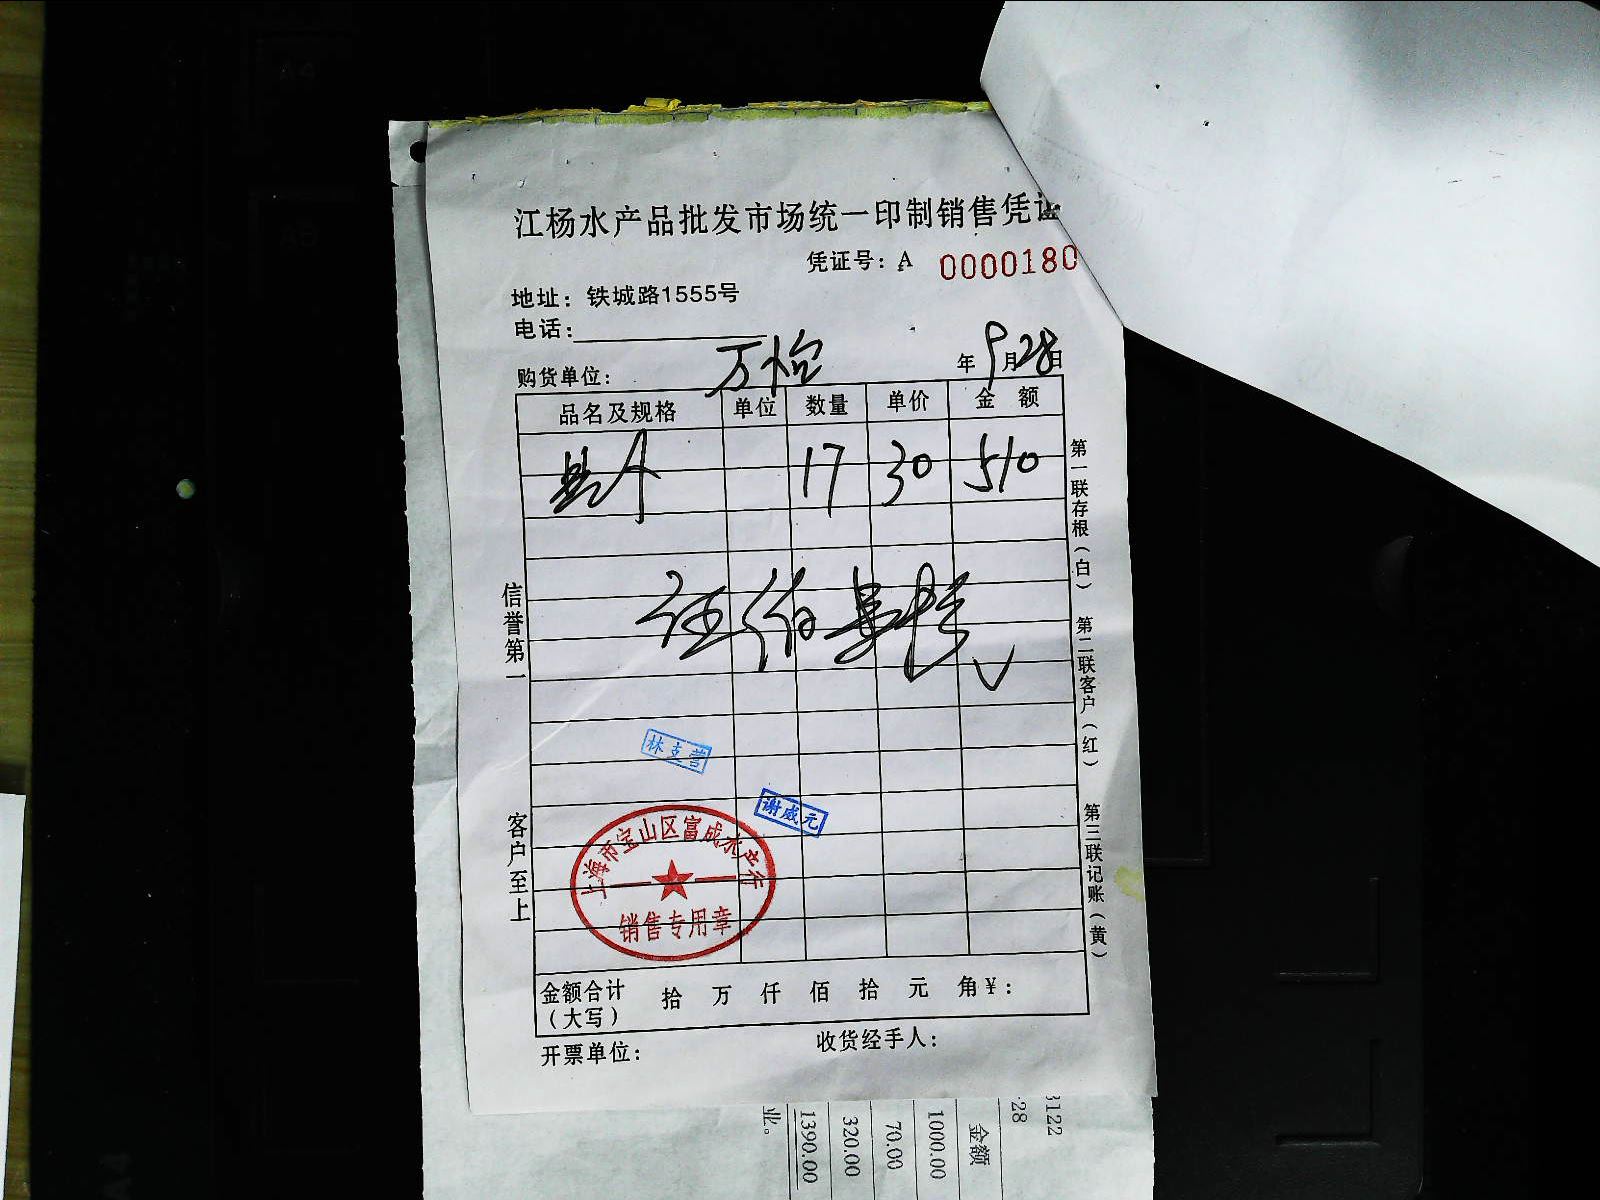 江杨水产品批发市场统一印制销售凭证
凭证号：A 0000180
地址：铁城路1555号
电话：
购货单位： 万怡 年 9 月 28 日
品名及规格 单位 数量 单价 金 额
17 30 510
第一联存根（白） 第二联客户（红） 第三联记账（黄）
信誉第一
客户至上
林支营
谢成元
上海市宝山区富成水产行
销售专用章
金额合计 拾 万 仟 佰 拾 元 角￥：
（大写）
开票单位： 收货经手人：
3122
-28
金额
1000.00
70.00
320.00
1390.00
业。